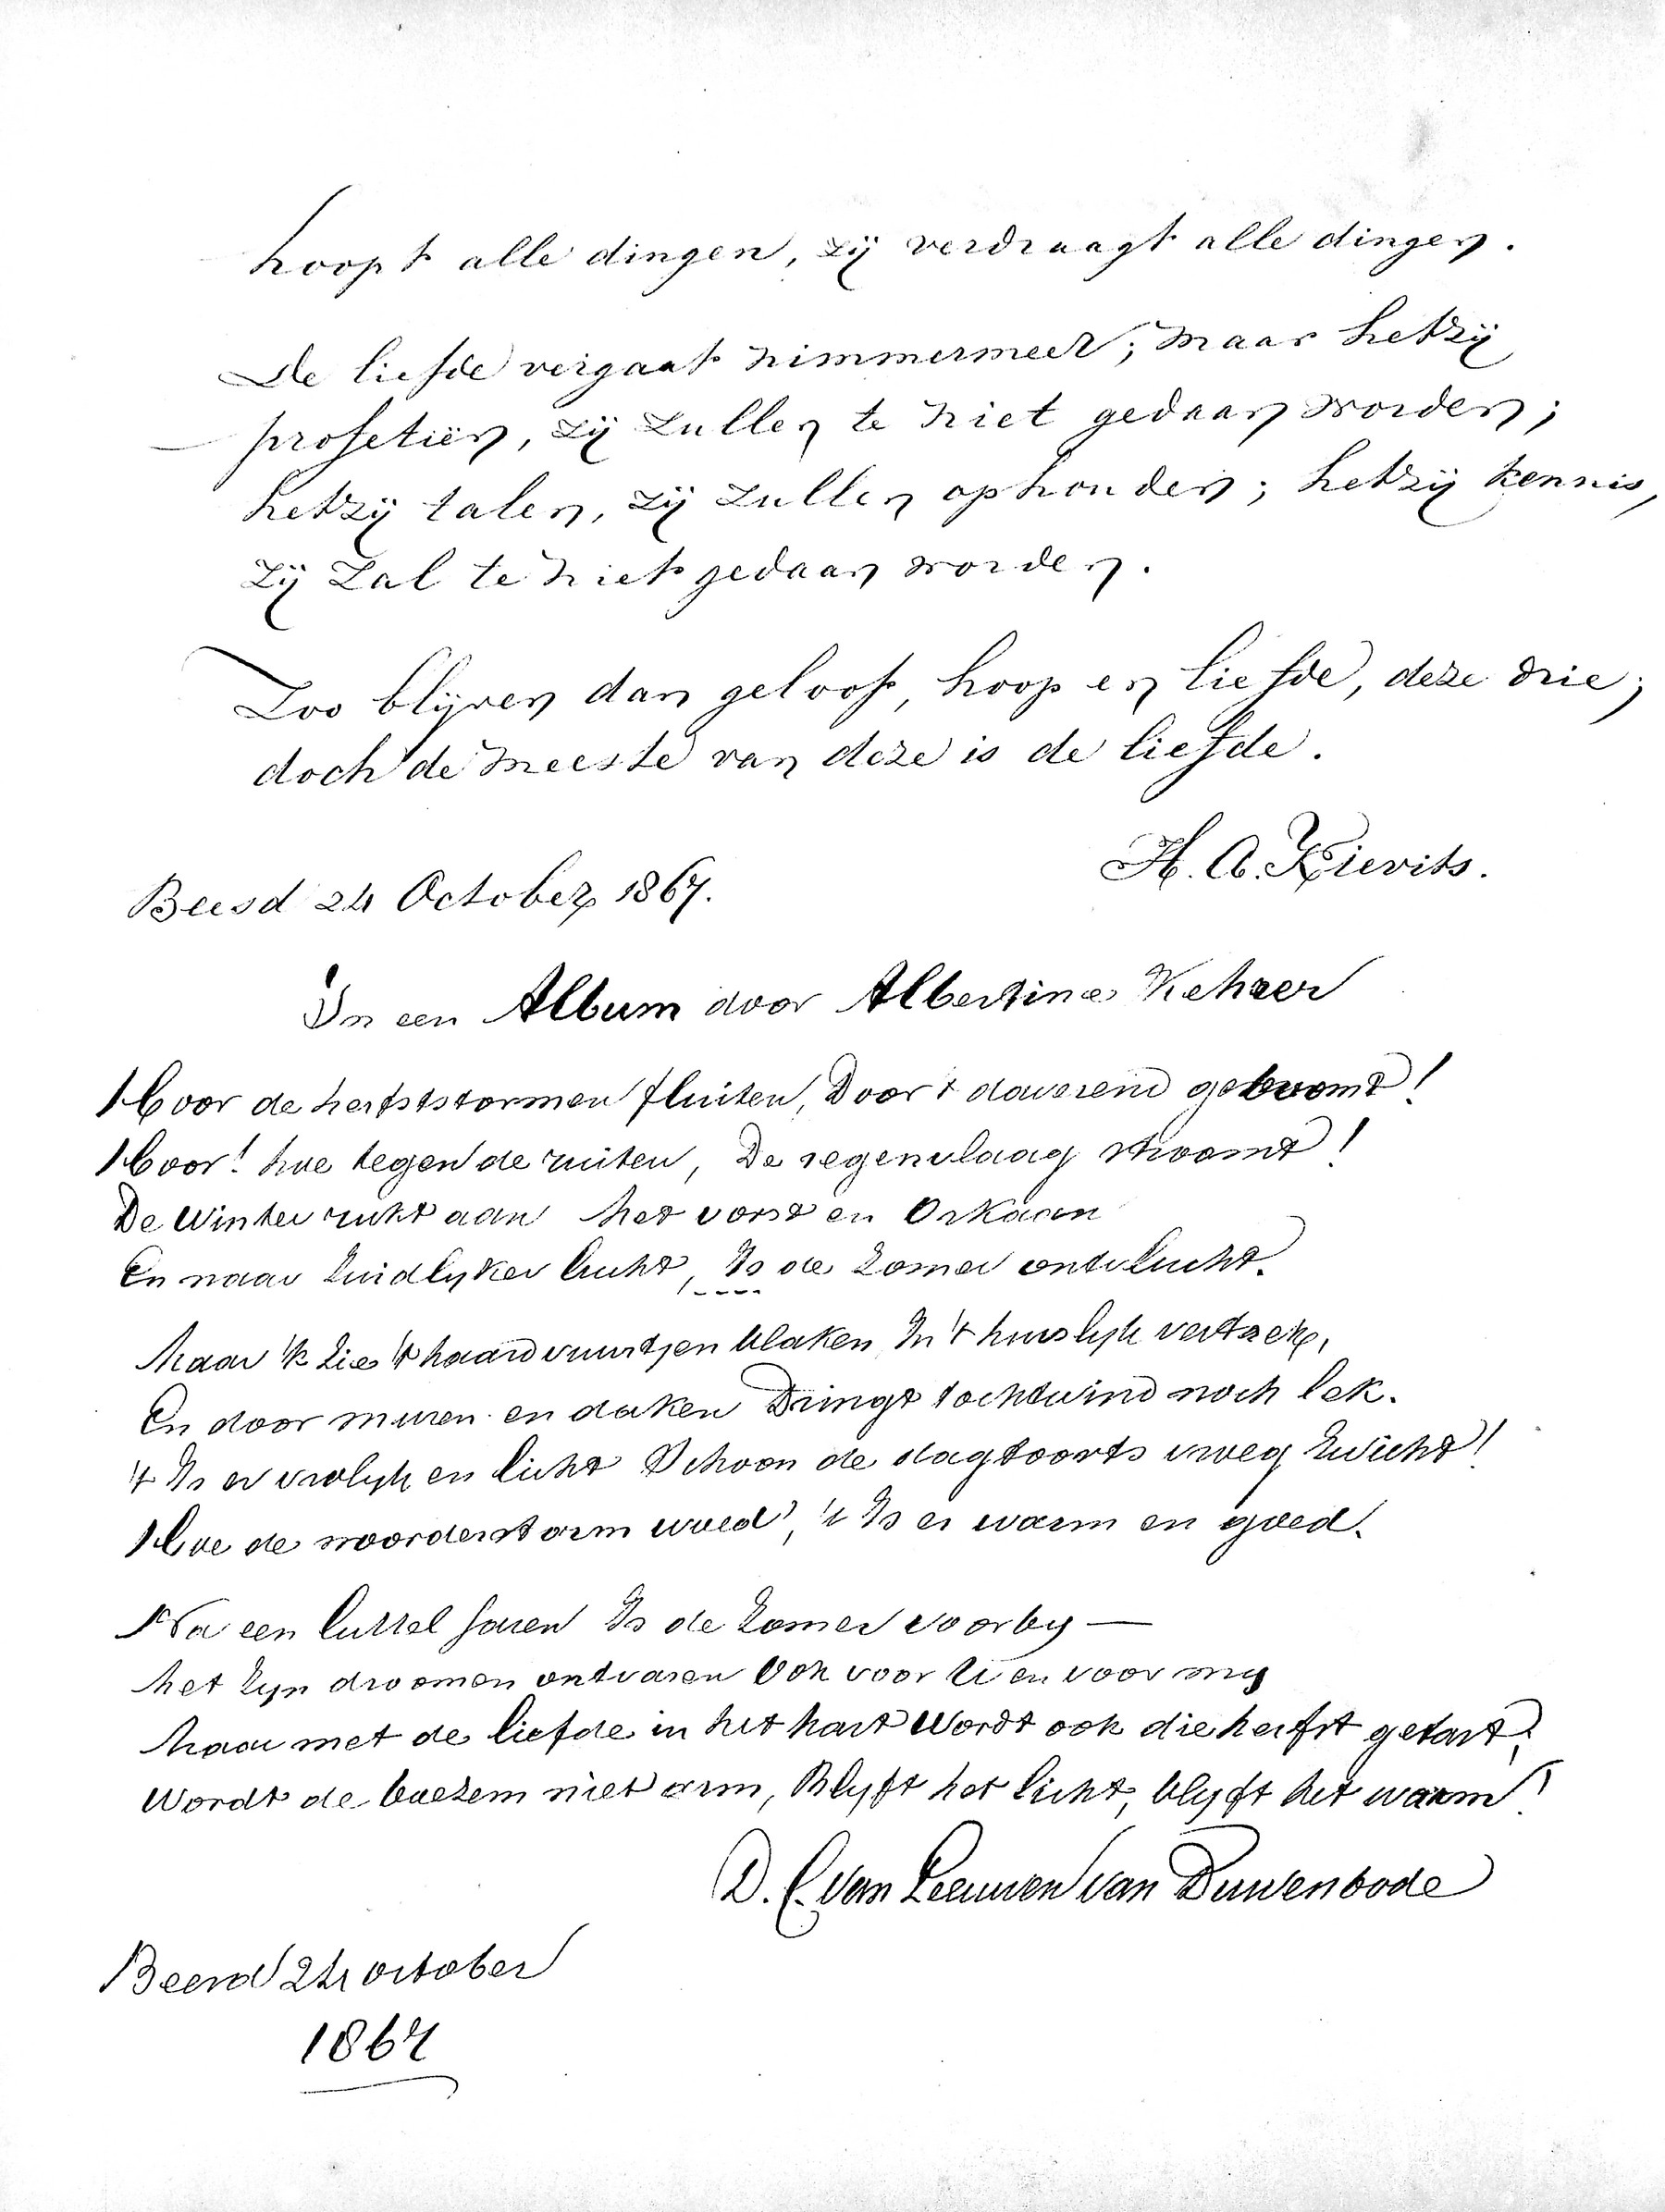 hoopt alle dingen, zij verdraagt alle dingen.
De liefde vergaat nimmermeer; maar hetzij
profetiën, zij zullen te niet gedaan worden;
hetzij talen, zij zullen ophouden; hetzij kennis,
zij zal te niet gedaan worden.
Zoo blijven dan geloof, hoop en liefde, deze drie;
doch de meeste van deze is de liefde.
H. A. Kievits.
Beesd 24 October 1867.
In een Album door Albertine Kehrer
Hoor de herfststormen fluiten, Door 't daverend geboomt!
Hoor! hoe tegen de ruiten, De regenvlaag stroomt!
De Winter rukt aan het vorst en Orkaan
En naar Zuidlyker lucht, Is de Zomer ontvlucht.
Maar 'k zie 't haardvuurtjen blaken In 't huislyk vertrek,
En door muren en daken Dringt tochtwind noch lek.
't Is er vrolyk en licht Schoon de dagtoorts vroeg zwicht!
Hoe de noorderstorm woed', 't Is er warm en goed.
Na een luttel jaren Is de Zomer voorby —
het zyn droomen ontvaren Ook voor U en voor my
Maar met de liefde in het hart Wordt ook die herfst getart,
Wordt de boezem niet arm, Blyft het licht, blyft het warm!
D. C. van Leeuwen van Duwenbode
Beesd 24 october
1867